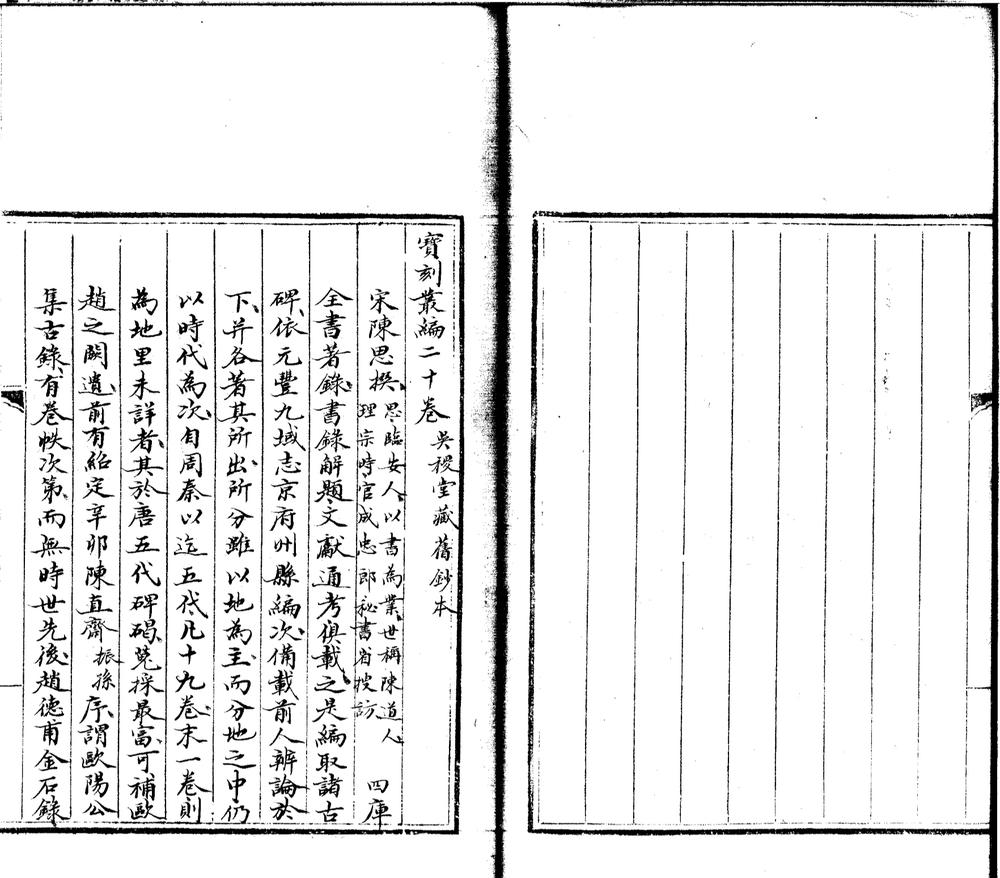 寶刻叢編二十卷 吳稷堂藏舊鈔本
宋陳思撰 思臨安人以書為業世稱陳道人 理宗時官成忠郎祕書省搜訪 四庫
全書著錄書錄解題文獻通考俱載之是編取諸古
碑依元豐九域志京府州縣編次備載前人辨論於
下并各著其所出所分雖以地為主而分地之中仍
以時代為次自周秦以迄五代凡十九卷末一卷則
為地里未詳者其於唐五代碑碣蒐採最富可補歐
趙之闕遺前有紹定辛卯陳直齋振孫序謂歐陽公
集古錄有卷帙次第而無時世先後趙德甫金石錄